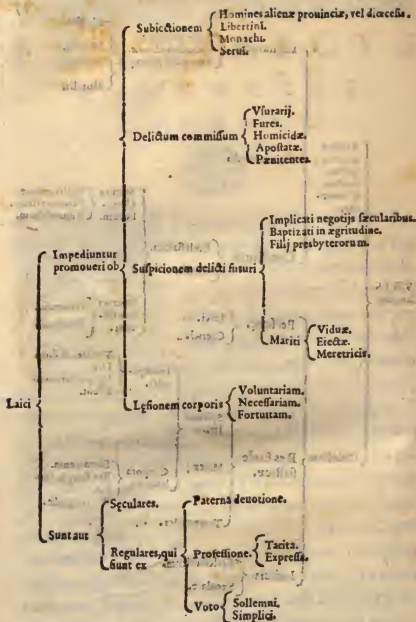 Subiectionem
Homines alienæ prouinciæ, vel diœcesis.
Libertini.
Monachi.
Serui.
Delictum commissum
Vsurarij.
Fures.
Homicidæ.
Apostatæ.
Pænitentes.
Impediuntur
promoueri ob
Suspicionem delicti futuri
Implicati negotijs sæcularibus.
Baptizati in ægritudine.
Filij presbyterorum.
Mariti
Viduæ.
Eiectæ.
Meretricis.
Lęsionem corporis
Voluntariam.
Necessariam.
Fortuitam.
Laici
Sunt aut
Sęculares.
Regulares, qui
fiunt ex
Paterna deuotione.
Professione.
Tacita.
Expressa.
Voto
Sollemni.
Simplici.